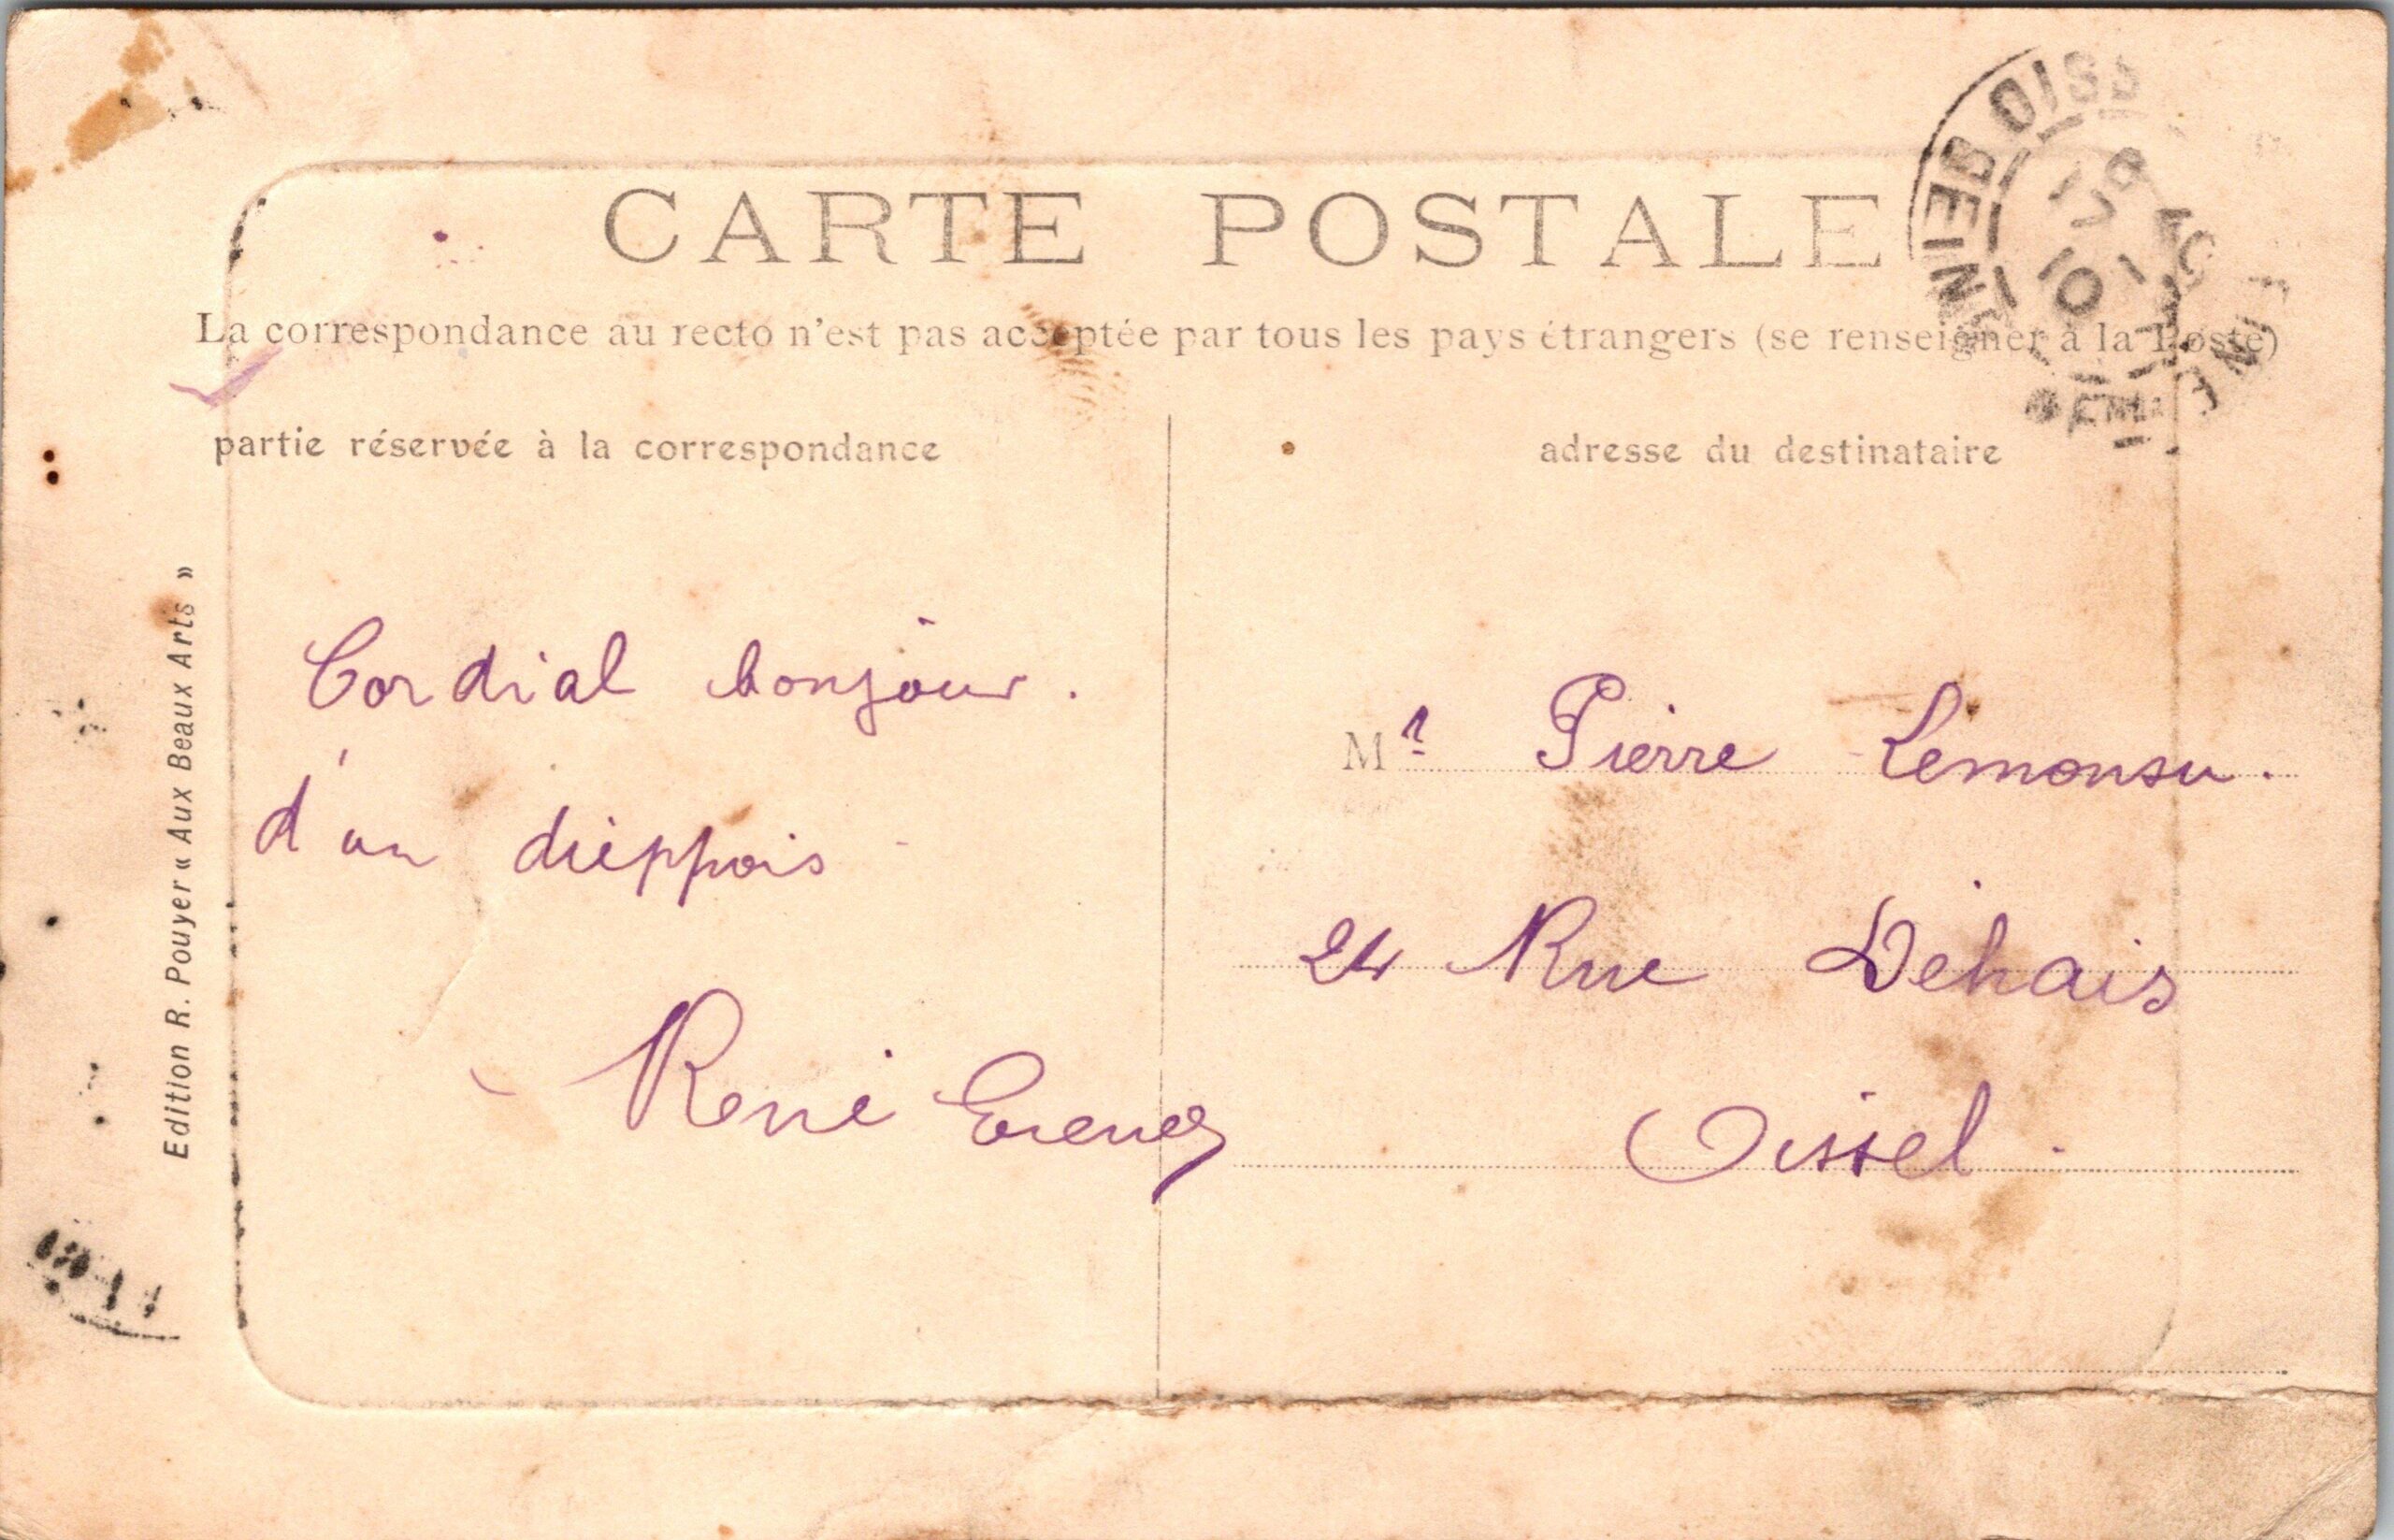 CARTE POSTALE
La correspondance au recto n'est pas acceptée par tous les pays étrangers (se renseigner à la Poste)
partie réservée à la correspondance
adresse du destinataire
Cordial bonjour.
d'un dieppois
René
Mr Pierre Lemonsu.
24 Rue Dehais
Oissel.
Edition R. Pouyer « Aux Beaux Arts »